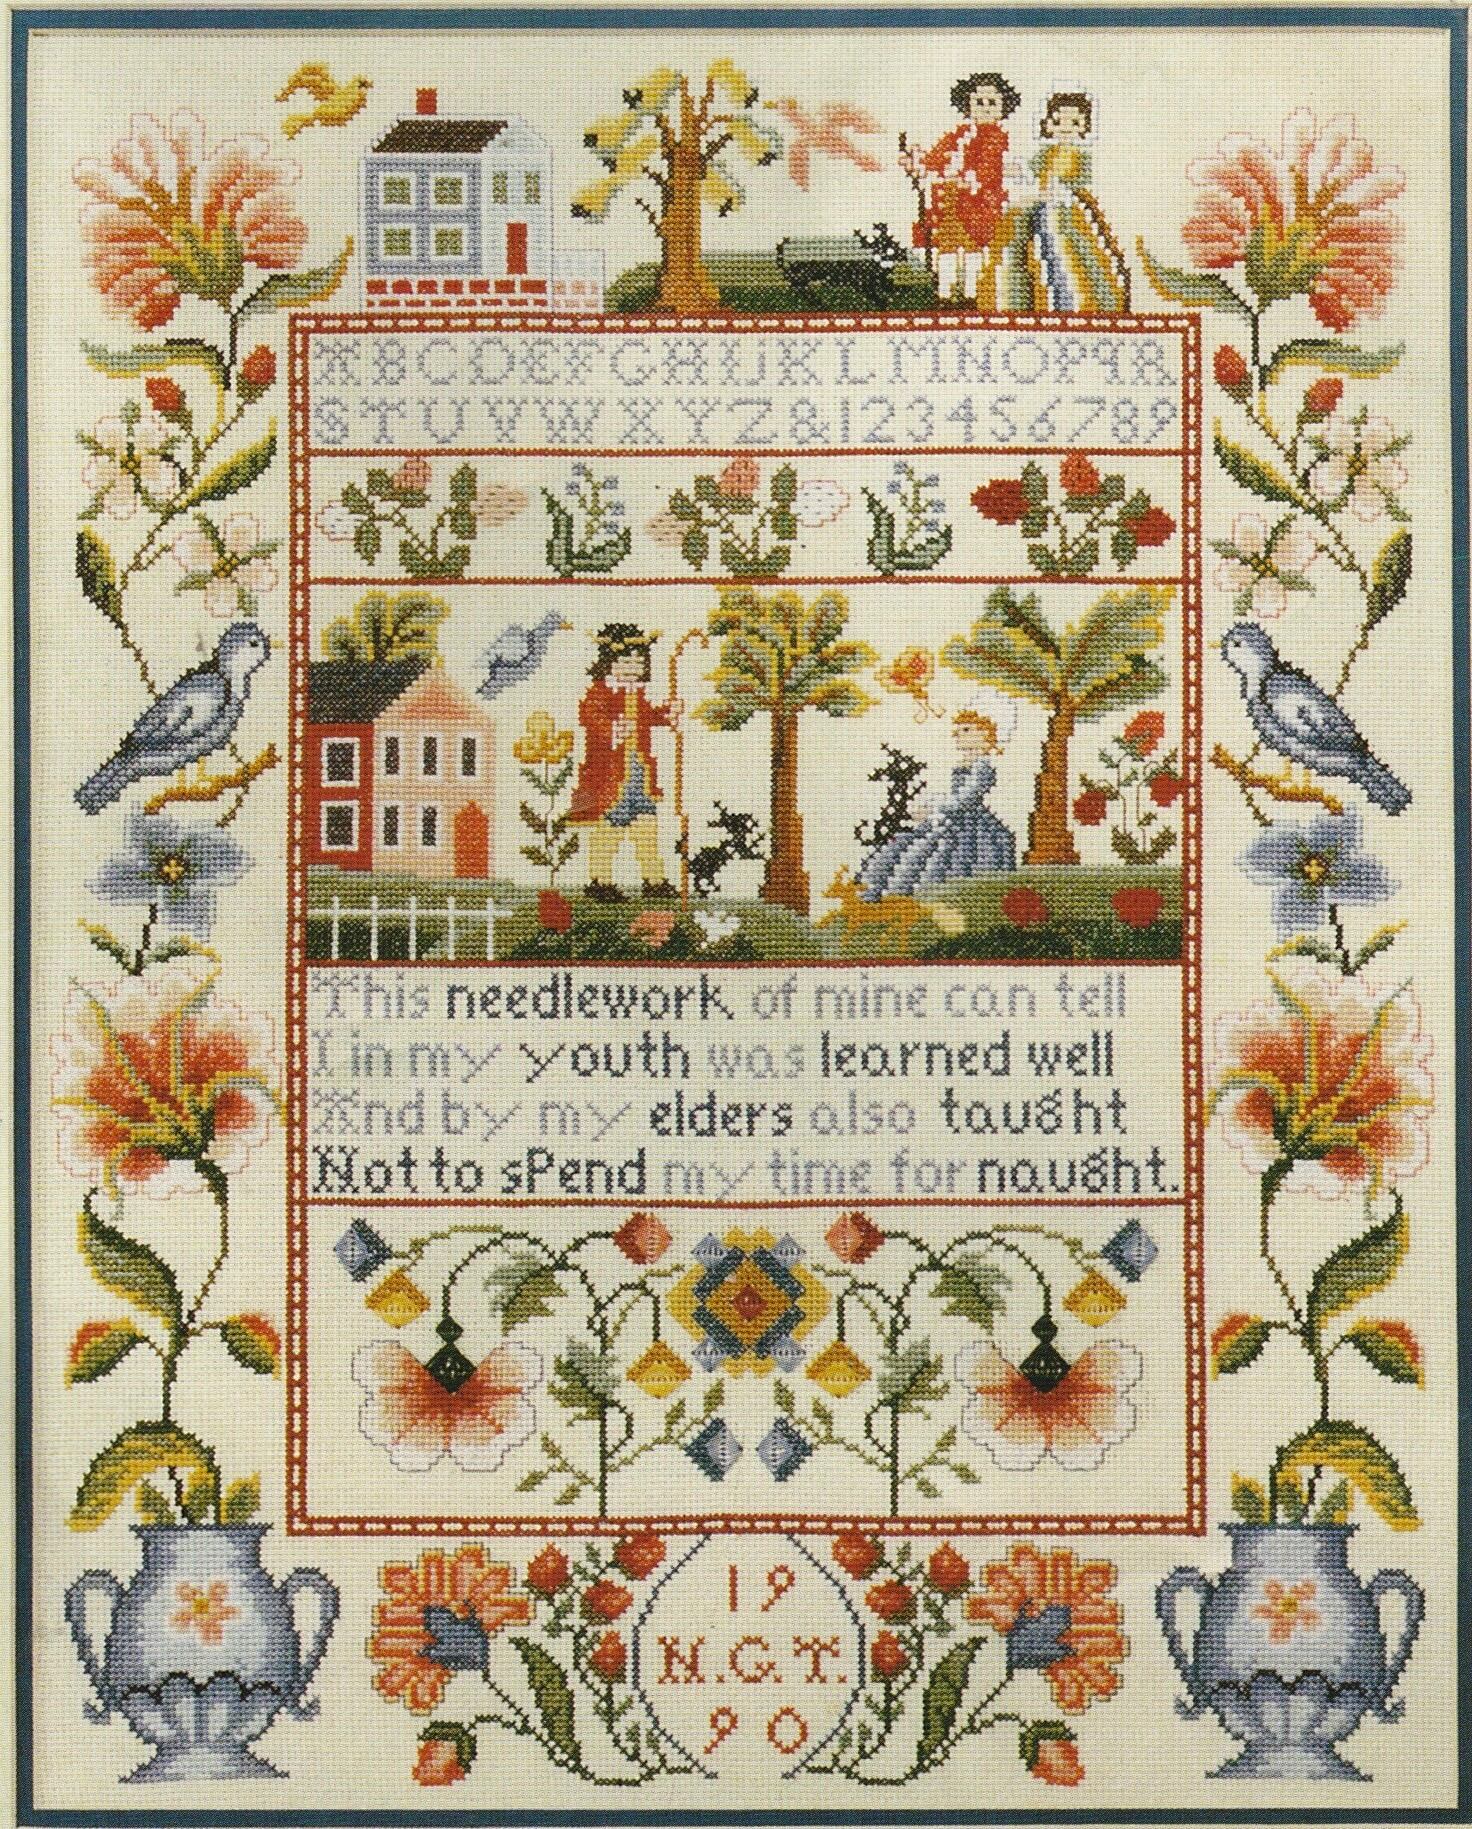 ABCDEFGHIJKLMNOPQR
STUVWXYZ&123456789
This needlework of mine can tell
I in my youth was learned well
And by my elders also taught
Not to spend my time for naught.
19
N.G.T.
90